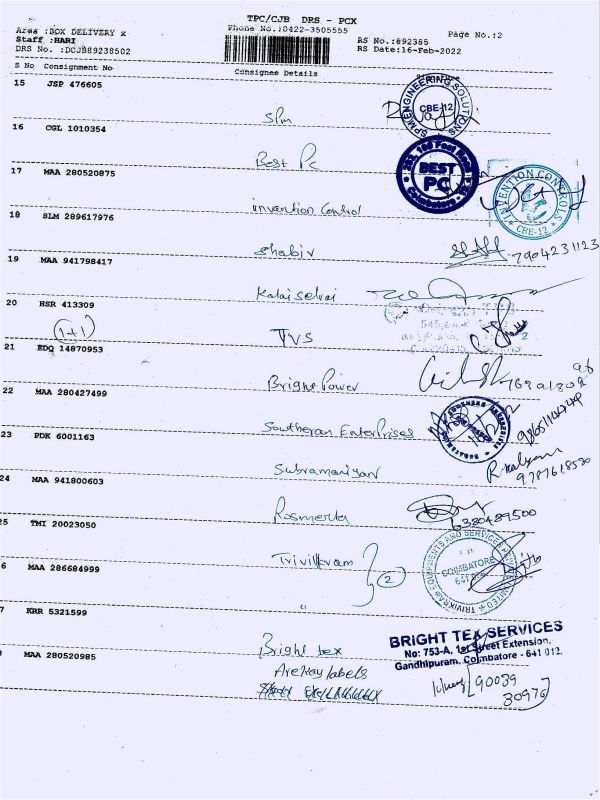 TPC/CJB DRS - PCX
Area :BOX DELIVERY X Phone No.:0422-3505555 Page No.:2
Staff :HARI RS No.:892385
DRS No. :DCJB89238502 RS Date:16-Feb-2022
S No Consignment No Consignee Details
15 JSP 476605
Spm
SPM ENGINEERING SOLUTIONS CBE-12
16 CGL 1010354
Best Pc
BEST PC Coimbatore
17 MAA 280520875
invention Control
INVENTION CONTROLS CBE-12
18 SLM 289617976
Shabiv 7904231123
19 MAA 941798417
Kalaiselvi
20 HSR 413309
(1+1) TVS
21 EDQ 14870953
Bright Power
22 MAA 280427499
Southeran Enterprises
23 PDK 6001163
Subramaniyan
R. Kalyani
9787618530
24 MAA 941800603
Rosmerta
6380489500
25 TMI 20023050
Trivikram 2
COIMBATORE
6 MAA 286684999
"
7 KRR 5321599
Bright tex
BRIGHT TEX SERVICES
No: 753-A, 1st Street Extension,
Gandhipuram, Coimbatore - 641 012.
8 MAA 280520985
AreKay labels
90039
30976